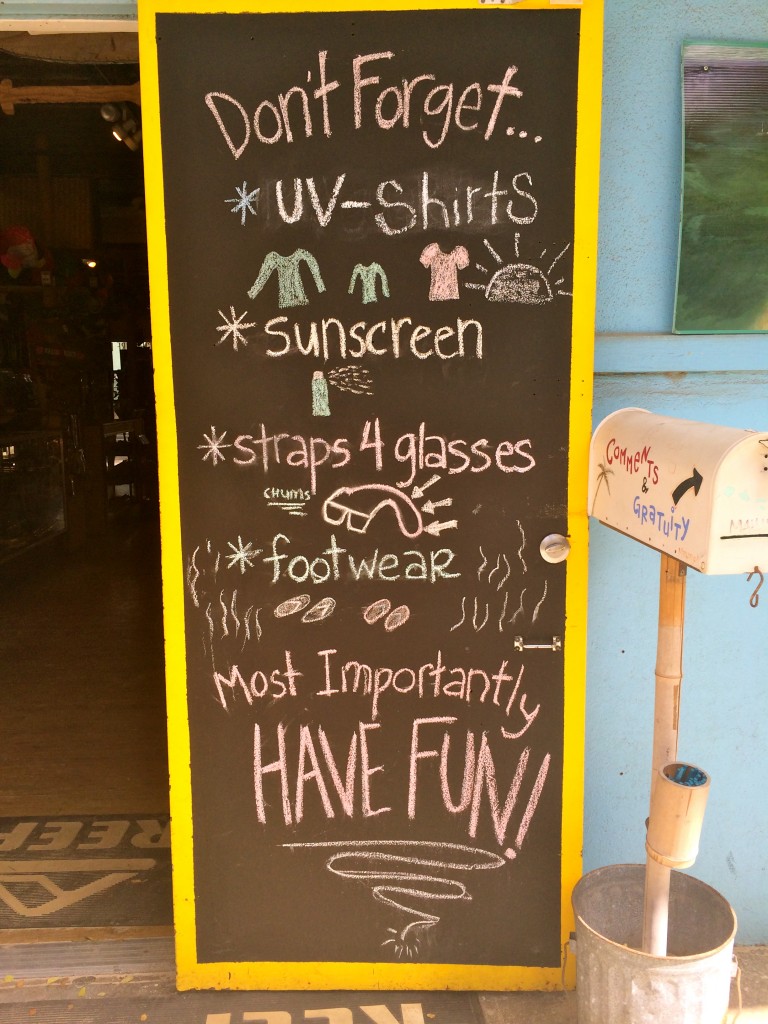 Don't Forget...
* UV-Shirts
* sunscreen
* straps 4 glasses
CHUMS
* footwear
Most Importantly
HAVE FUN!
COMMENTS
&
GRATUITY
REEF
REEF